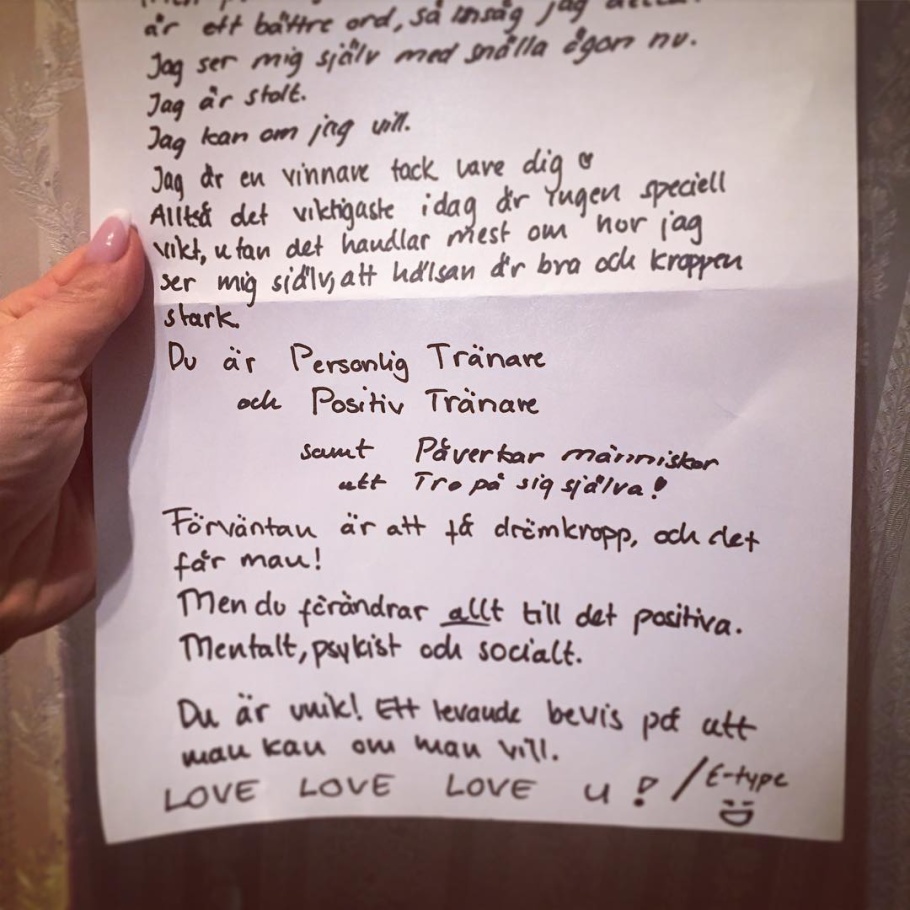 är ett bättre ord, så insåg jag
Jag ser mig själv med snälla ögon nu.
Jag är stolt.
Jag kan om jag vill.
Jag är en vinnare tack vare dig
Alltså det viktigaste idag är ingen speciell
vikt, utan det handlar mest om hor jag
ser mig själv, att hälsan är bra och kroppen
stark.
Du är Personlig Tränare
och Positiv Tränare
samt Påverkar människor
att Tro på sig själva!
Förväntan är att få drömkropp, och det
får man!
Men du förändrar allt till det positiva.
Mentalt, psykist och socialt.
Du är unik! Ett levande bevis på att
man kan om man vill.
LOVE LOVE LOVE U! /E-type